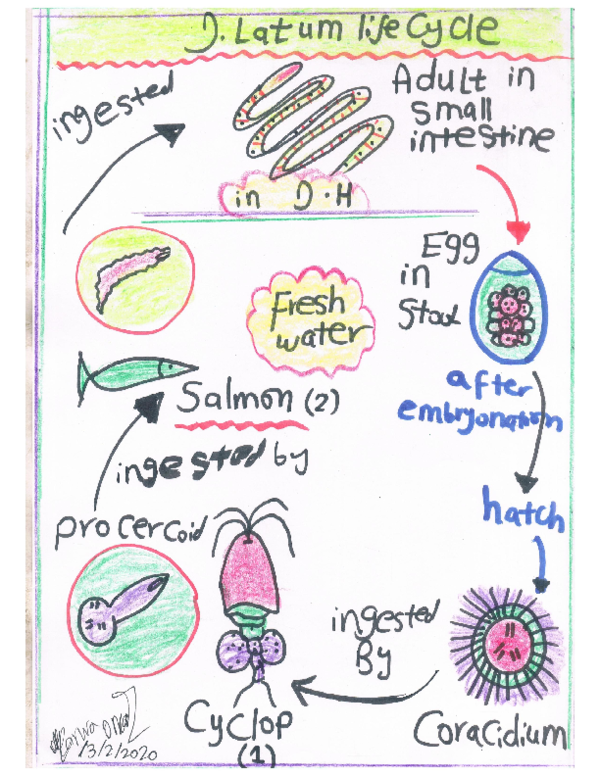 D. Latum life Cycle
ingested
Adult in
small
intestine
in D.H
Egg
in
Stool
Fresh
water
after
embryonation
Salmon (2)
ingested by
hatch
procercoid
ingested
By
Cyclop
(1)
Coracidium
13/2/2020